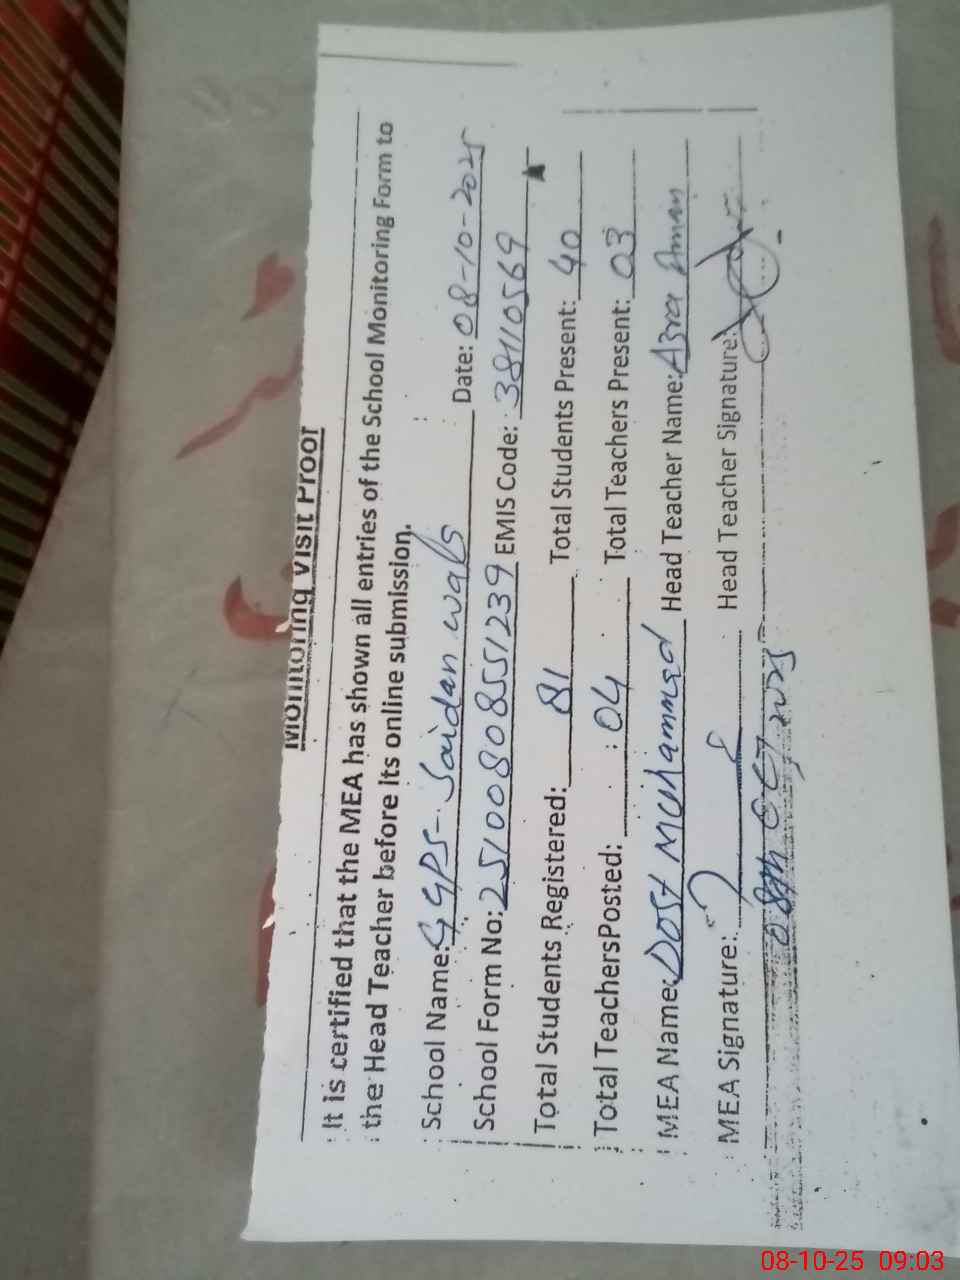 Monitoring Visit Proof
It is certified that the MEA has shown all entries of the School Monitoring Form to
the Head Teacher before its online submission.
School Name: GGPS- Saidan wals Date: 08-10-2025
School Form No: 25100808551239 EMIS Code: 38110569
Total Students Registered: 81 Total Students Present: 40
Total TeachersPosted: 04 Total Teachers Present: 03
MEA Name: Dost Muhammed Head Teacher Name: Azra Aman
MEA Signature: Head Teacher Signature:
08th Oct 2025
08-10-25 09:03